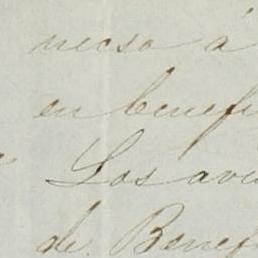 necso á
en benefi
Los ave
de Benef